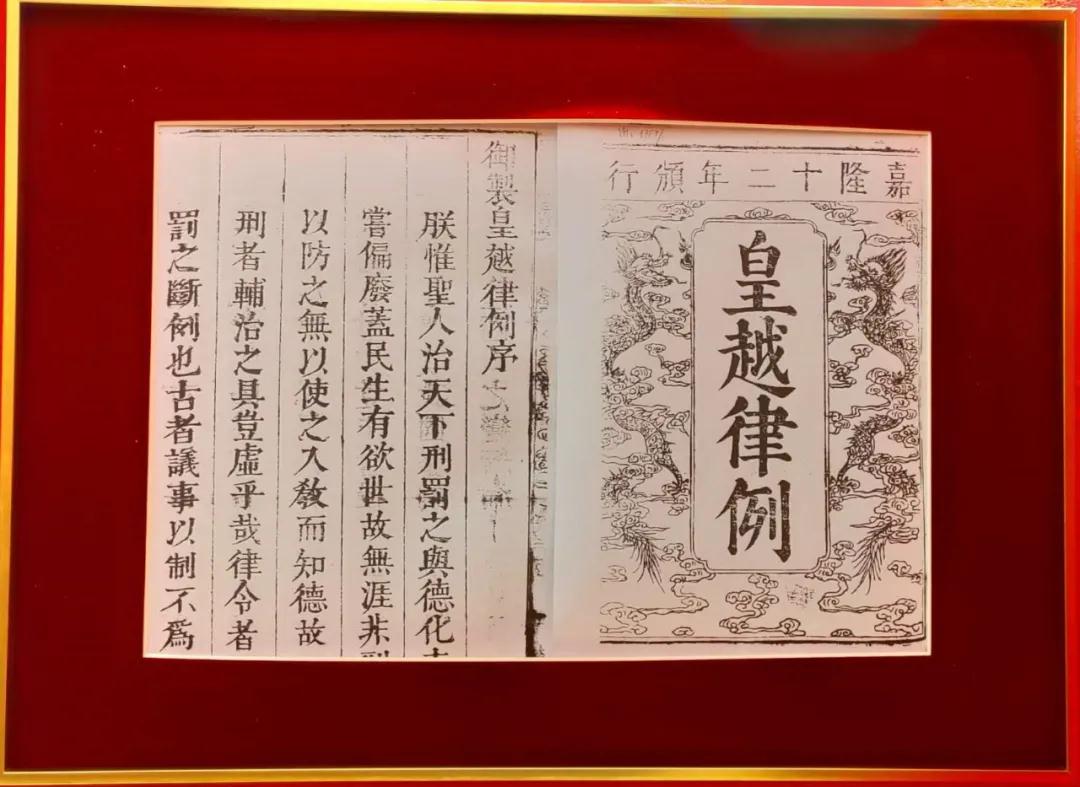 嘉隆十二年頒行
皇越律例
御製皇越律例序
朕惟聖人治天下刑罰之與德化
嘗偏廢蓋民生有欲世故無涯非
以防之無以使之入敎而知德故
刑者輔治之具豈虛乎哉律令者
罰之斷例也古者議事以制不爲